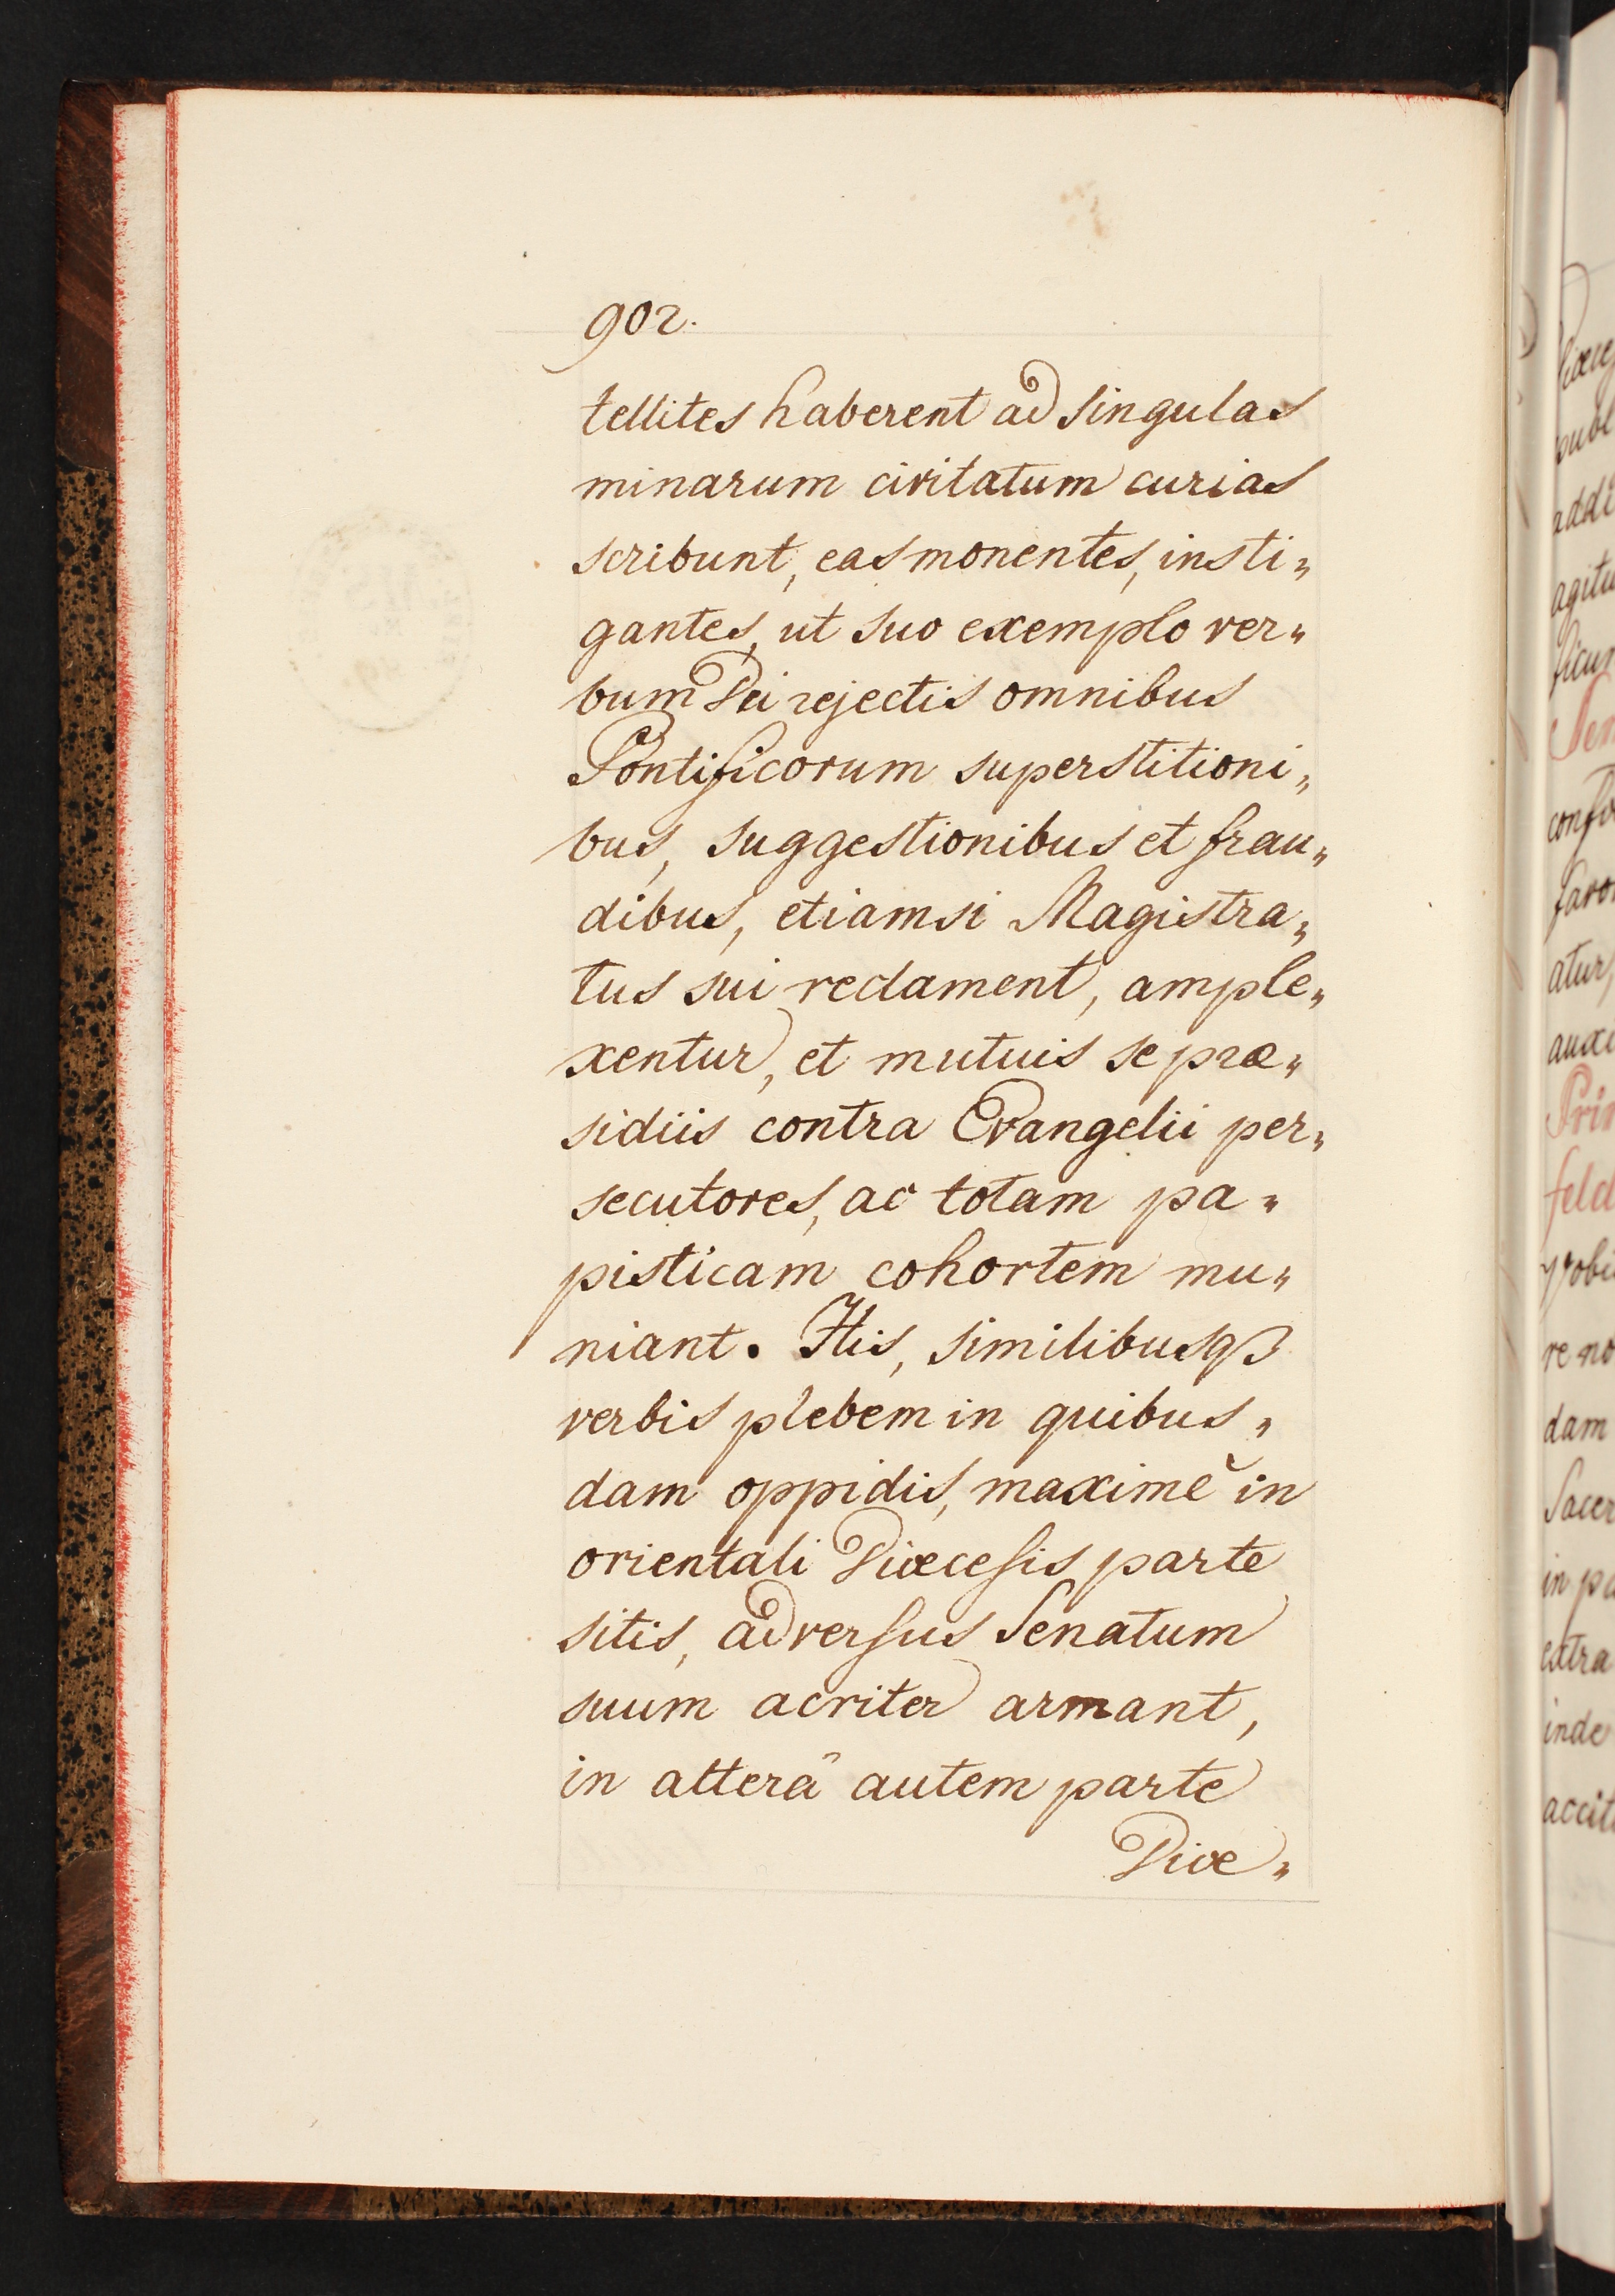 902.
tellites haberent ad singulas
minarum civitatum curias
scribunt, eas monentes, insti„
gantes, ut suo exemplo ver„
bum Dei rejectis omnibus
Pontificorum superstitioni„
bus, suggestionibus et frau„
dibus, etiamsi Magistra„
tus sui reclament, ample„
xentur, et mutuis se præ„
sidiis contra Evangelii per„
secutores, ac totam pa„
pisticam cohortem mu„
niant. His, similibusqꝫ
verbis plebem in quibus„
dam oppidis, maximè in
orientali Diœcesis parte
sitis, adversus Senatum
suum acriter armant,
in alterâ autem parte
Diœ„